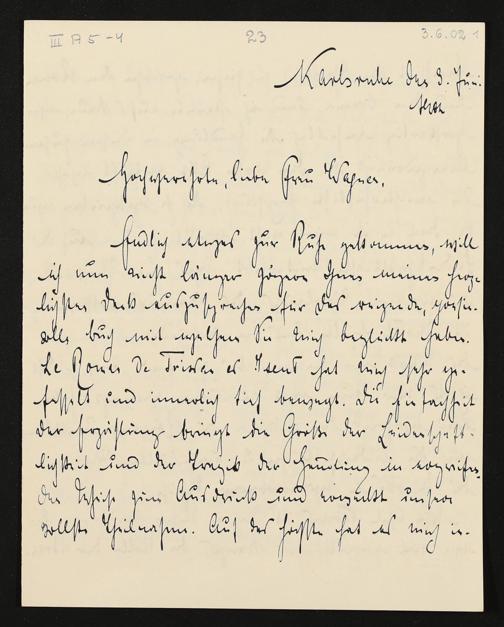 III A 5-4 23 3.6.02 1
Karlsruhe den 3. Juni
1902
Hochverehrte, liebe Frau Wagner,
Endlich etwas zur Ruhe gekommen, will
ich nun nicht länger zögern Ihnen meinen herz-
lichsten Dank auszusprechen für das reizende, poesie-
volle buch mit welchem Sie mich beglückt haben.
Le Roman de Tristan et Iseut hat mich sehr ge-
fesselt und innerlich tief bewegt. Die Einfachheit
der Erzählung bringt die Größe der Leidenschaft-
lichkeit und der Tragik der Handlung in ergreifen-
der Weise zum Ausdruck und erweckt unsere
vollste Theilnahme. Auf das höchste hat es mich in-